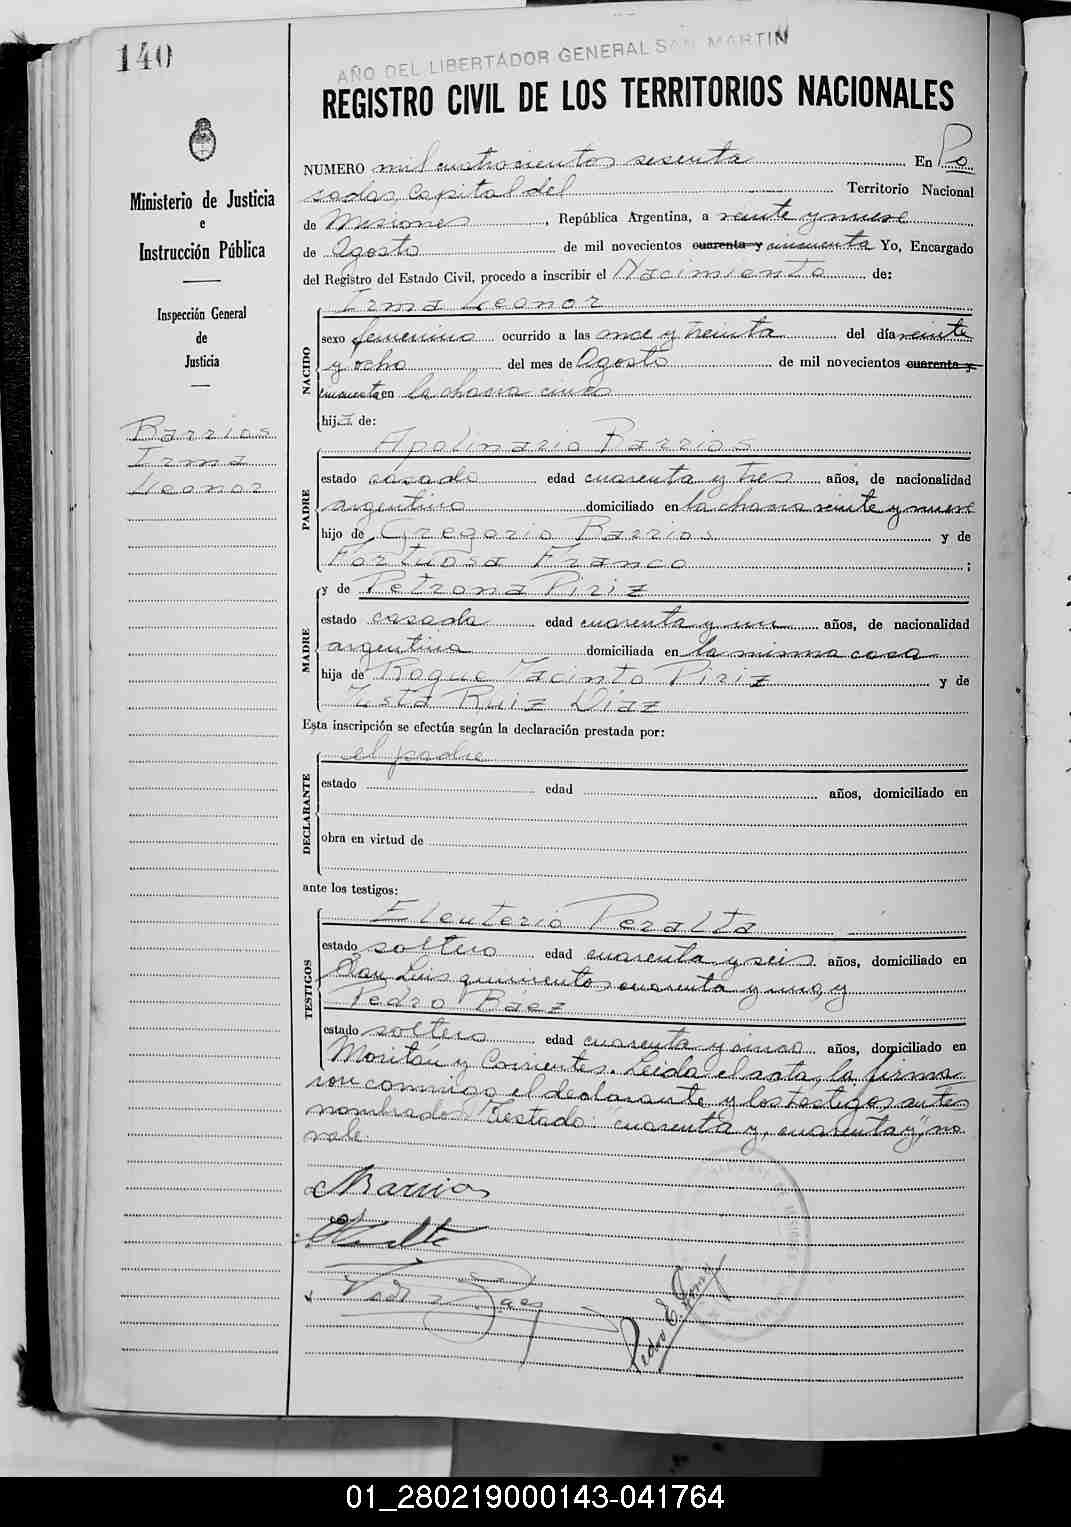 140
AÑO DEL LIBERTADOR GENERAL SAN MARTIN
REGISTRO CIVIL DE LOS TERRITORIOS NACIONALES
Ministerio de Justicia
e
Instrucción Pública
Inspección General
de
Justicia
Barrios
Irma
Leonor
NUMERO mil cuatrocientos sesenta En Po
sadas, Capital del Territorio Nacional
de Misiones, República Argentina, a veinte y nueve
de Agosto de mil novecientos cuarenta y cincuenta Yo, Encargado
del Registro del Estado Civil, procedo a inscribir el Nacimiento de:
NACIDO
Irma Leonor
sexo femenino ocurrido a las once y treinta del día veinte
y ocho del mes de Agosto de mil novecientos cuarenta y
cincuenta en la chacra cinco
hija de:
PADRE
Apolinario Barrios
estado casado edad cuarenta y tres años, de nacionalidad
argentino domiciliado en la chacra veinte y nueve
hijo de Gregorio Barrios y de
Fortuosa Franco ;
MADRE
y de Petrona Piriz
estado casada edad cuarenta y un años, de nacionalidad
argentina domiciliada en la misma casa
hija de Roque Jacinto Piriz y de
Ruiz Diaz
Esta inscripción se efectúa según la declaración prestada por:
DECLARANTE
el padre
estado edad años, domiciliado en
obra en virtud de
ante los testigos:
TESTIGOS
Eleuterio Peralta
estado soltero edad cuarenta y seis años, domiciliado en
San Luis quinientos cuarenta y uno, y
Pedro Baez
estado soltero edad cuarenta y cinco años, domiciliado en
Moritan y Corrientes. Leida el acta, la firma
ron conmigo el declarante y los testigos antes
nombrados. Testado: "cuarenta y, cuarenta y", no
vale.
Barrios
Pedro Baez
Pedro E.
01_280219000143-041764